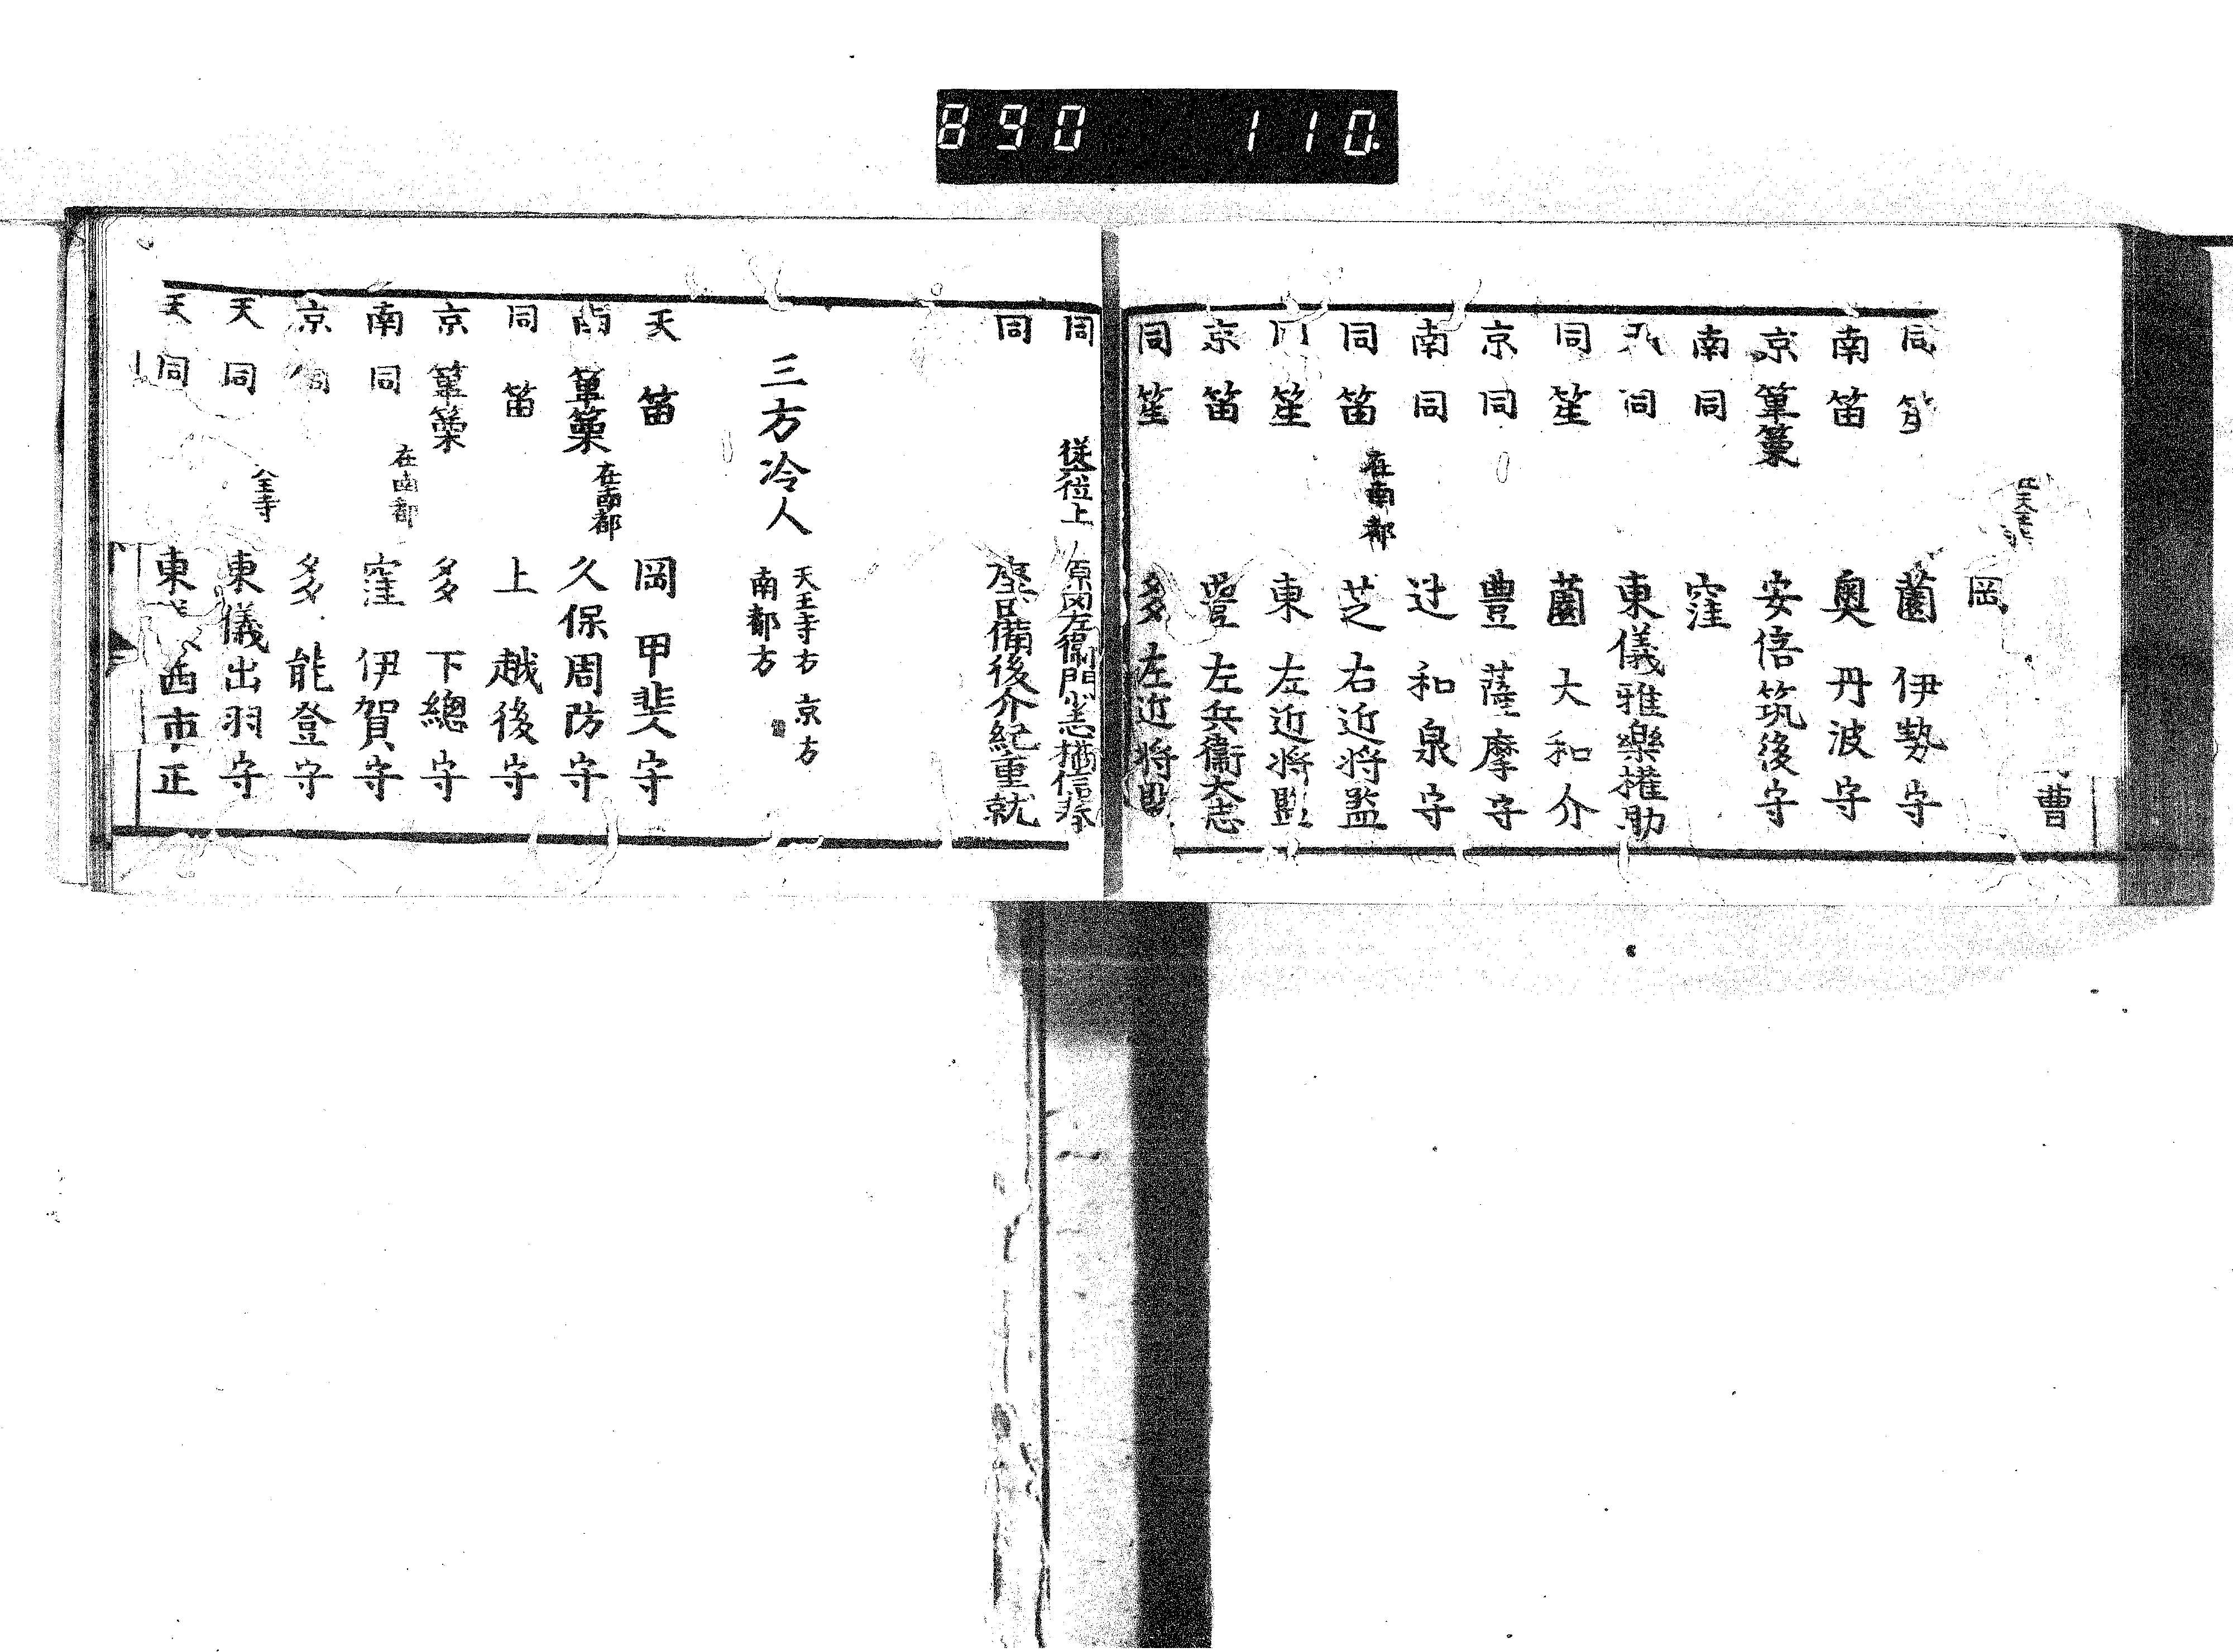 890 110.
曹
岡
同 薗 伊勢守
南 笛 奥 丹波守
京 篳篥 安倍筑後守
南 同 窪
同 東儀雅樂權助
同 笙 薗 大和介
京 同 豊 薩摩守
南 同 辻 和泉守
同 笛 在南都 芝 右近將監
同 笙 東 左近將監
京 笛 豊 左兵衞大志
同 笙 多 左近將監
同 從六位上
同 備後介紀重就
三方冷人 天王寺方 京方
南都方
天 笛 岡 甲斐守
南 篳篥 在南都 久保周防守
同 笛 上 越後守
京 篳篥 多 下總守
南 同 在南都 窪 伊賀守
京 同 多 能登守
天 同 仝寺 東儀出羽守
天 同 東 西市正